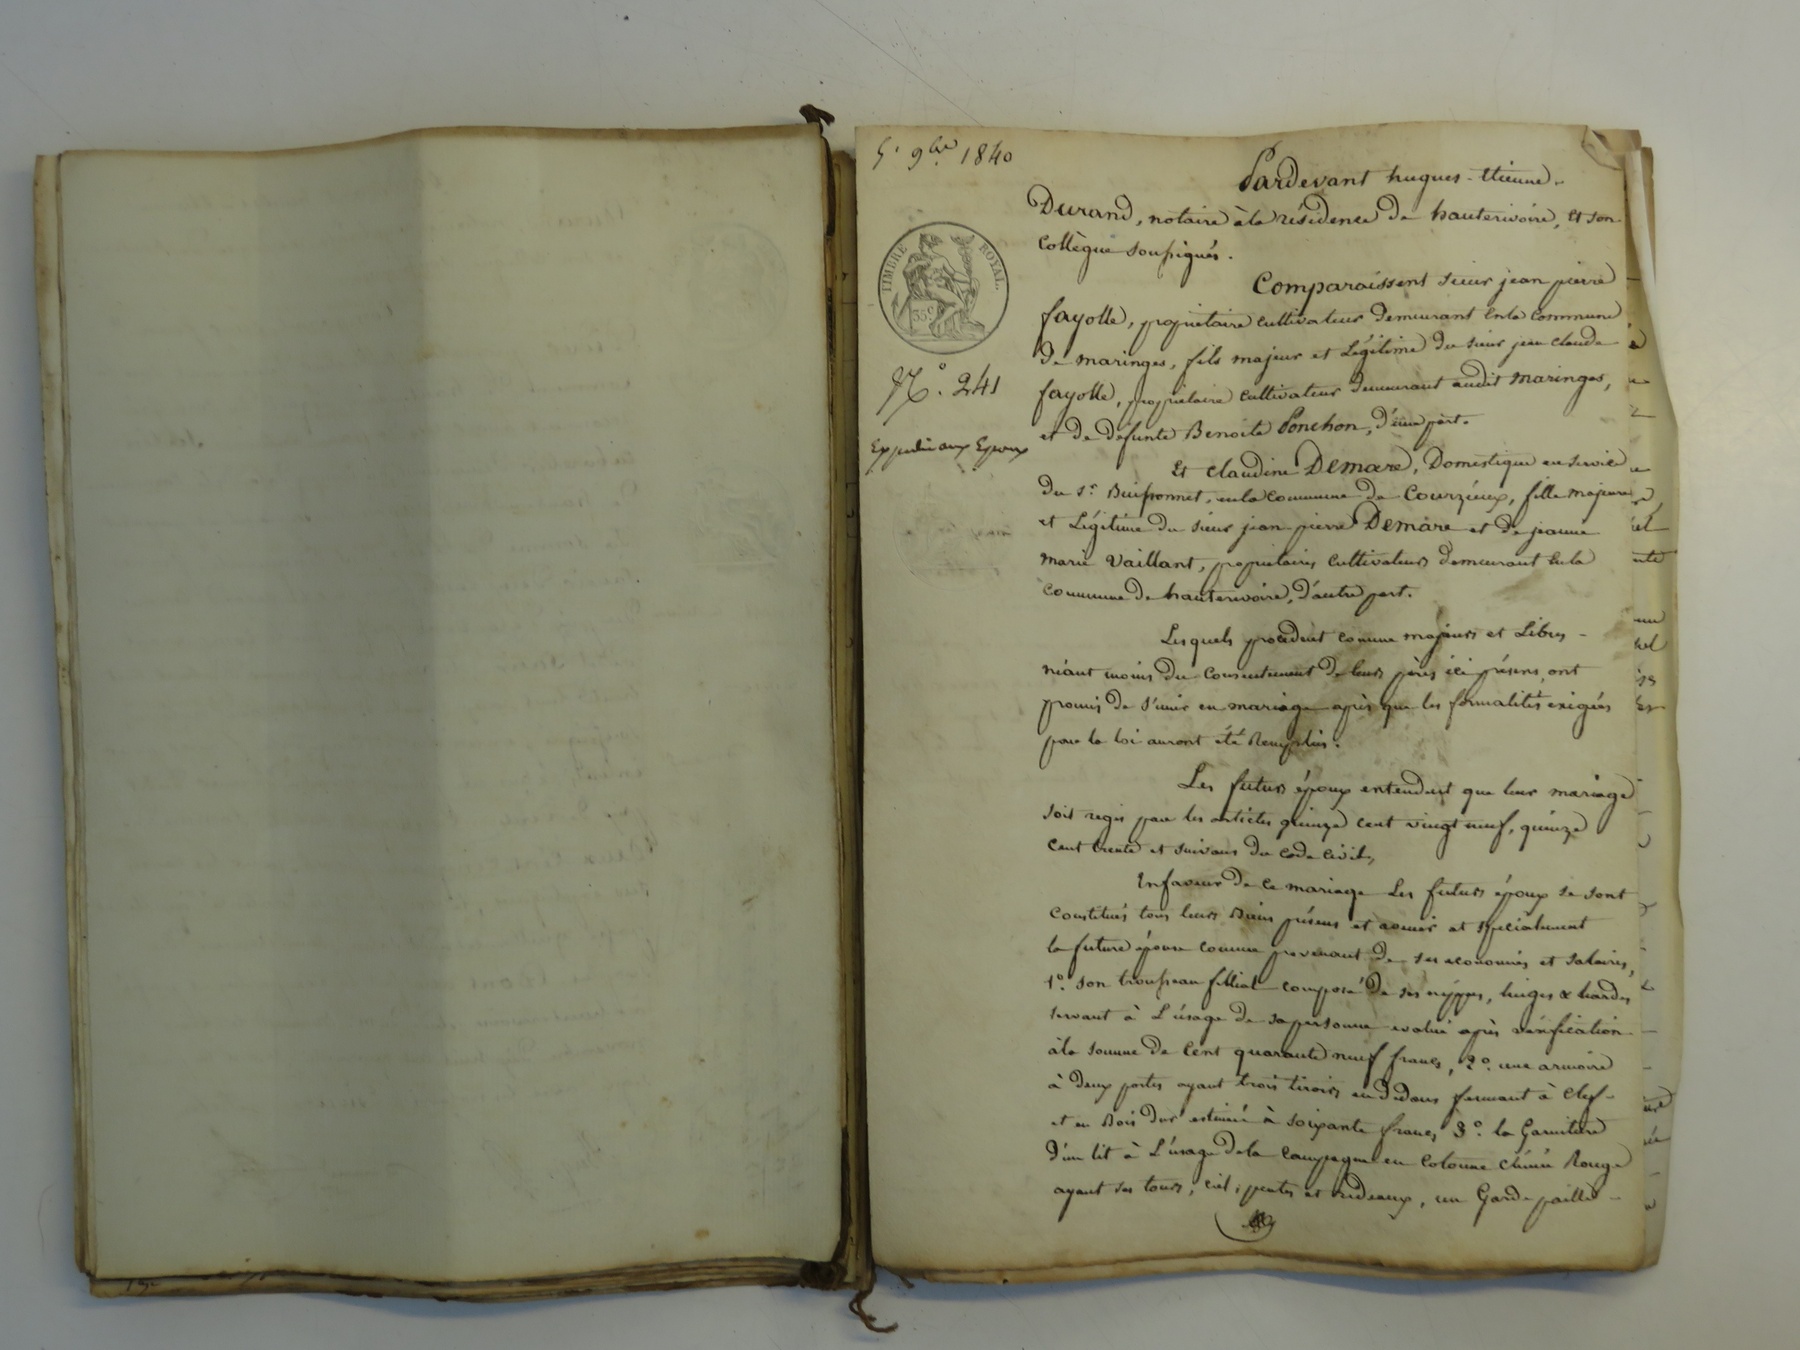 5 9bre 1840
TIMBRE ROYAL.
35c
N.o 241
Expédié aux Epoux
Pardevant hugues-etienne
Durand, notaire à la résidence de hauterivoire, et son
collègue soussignés.
Comparaissent sieur jean pierre
fayolle, propriétaire cultivateur demeurant en la commune
de maringes, fils majeur et Légitime du sieur jean claude
fayolle, propriétaire cultivateur demeurant audit maringes,
et de défunte Benoite Ponchon, d'une part.
Et claudine Demare, Domestique en service
du sr. Buissonnet, en la commune de Courzieux, fille majeure
et Légitime du sieur jean pierre Demare et de jeanne
marie Vaillant, propriétaires cultivateurs demeurant en la
commune de hauterivoire, d'autre part.
Lesquels procédant comme majeurs et Libres
néant moins du consentement de leurs pères ici présens, ont
promis de s'unir en mariage après que les formalités exigées
par la loi auront été Remplies.
Les futurs époux entendent que leur mariage
soit regis par les articles quinze cent vingt neuf, quinze
cent trente et suivans du code civil,
En faveur de ce mariage Les futurs époux se sont
constitués tous leurs Biens présens et avenir et spécialement
la future épouse comme provenant de ses economies et salaires,
1o. son trousseau fillial composé de ses nippes, linges & hardes
servant à L'usage de sa personne evalué après vérification
à la somme de cent quarante neuf francs, 2o. une armoire
à deux portes ayant trois tiroirs en dedans fermant à clef
et en Bois dur estimée à soixante francs 3o. la Garniture
d'un lit à L'usage de la campagne en cotonne chinée Rouge
ayant ses tours, ciel, pentes et Rideaux, un Garde paille